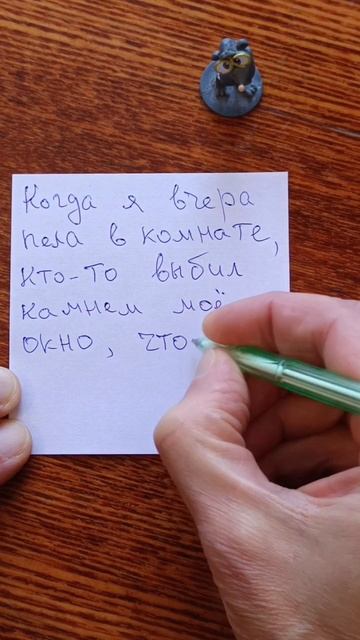 Когда я вчера
пела в комнате,
кто-то выбил
камнем моё
окно, что